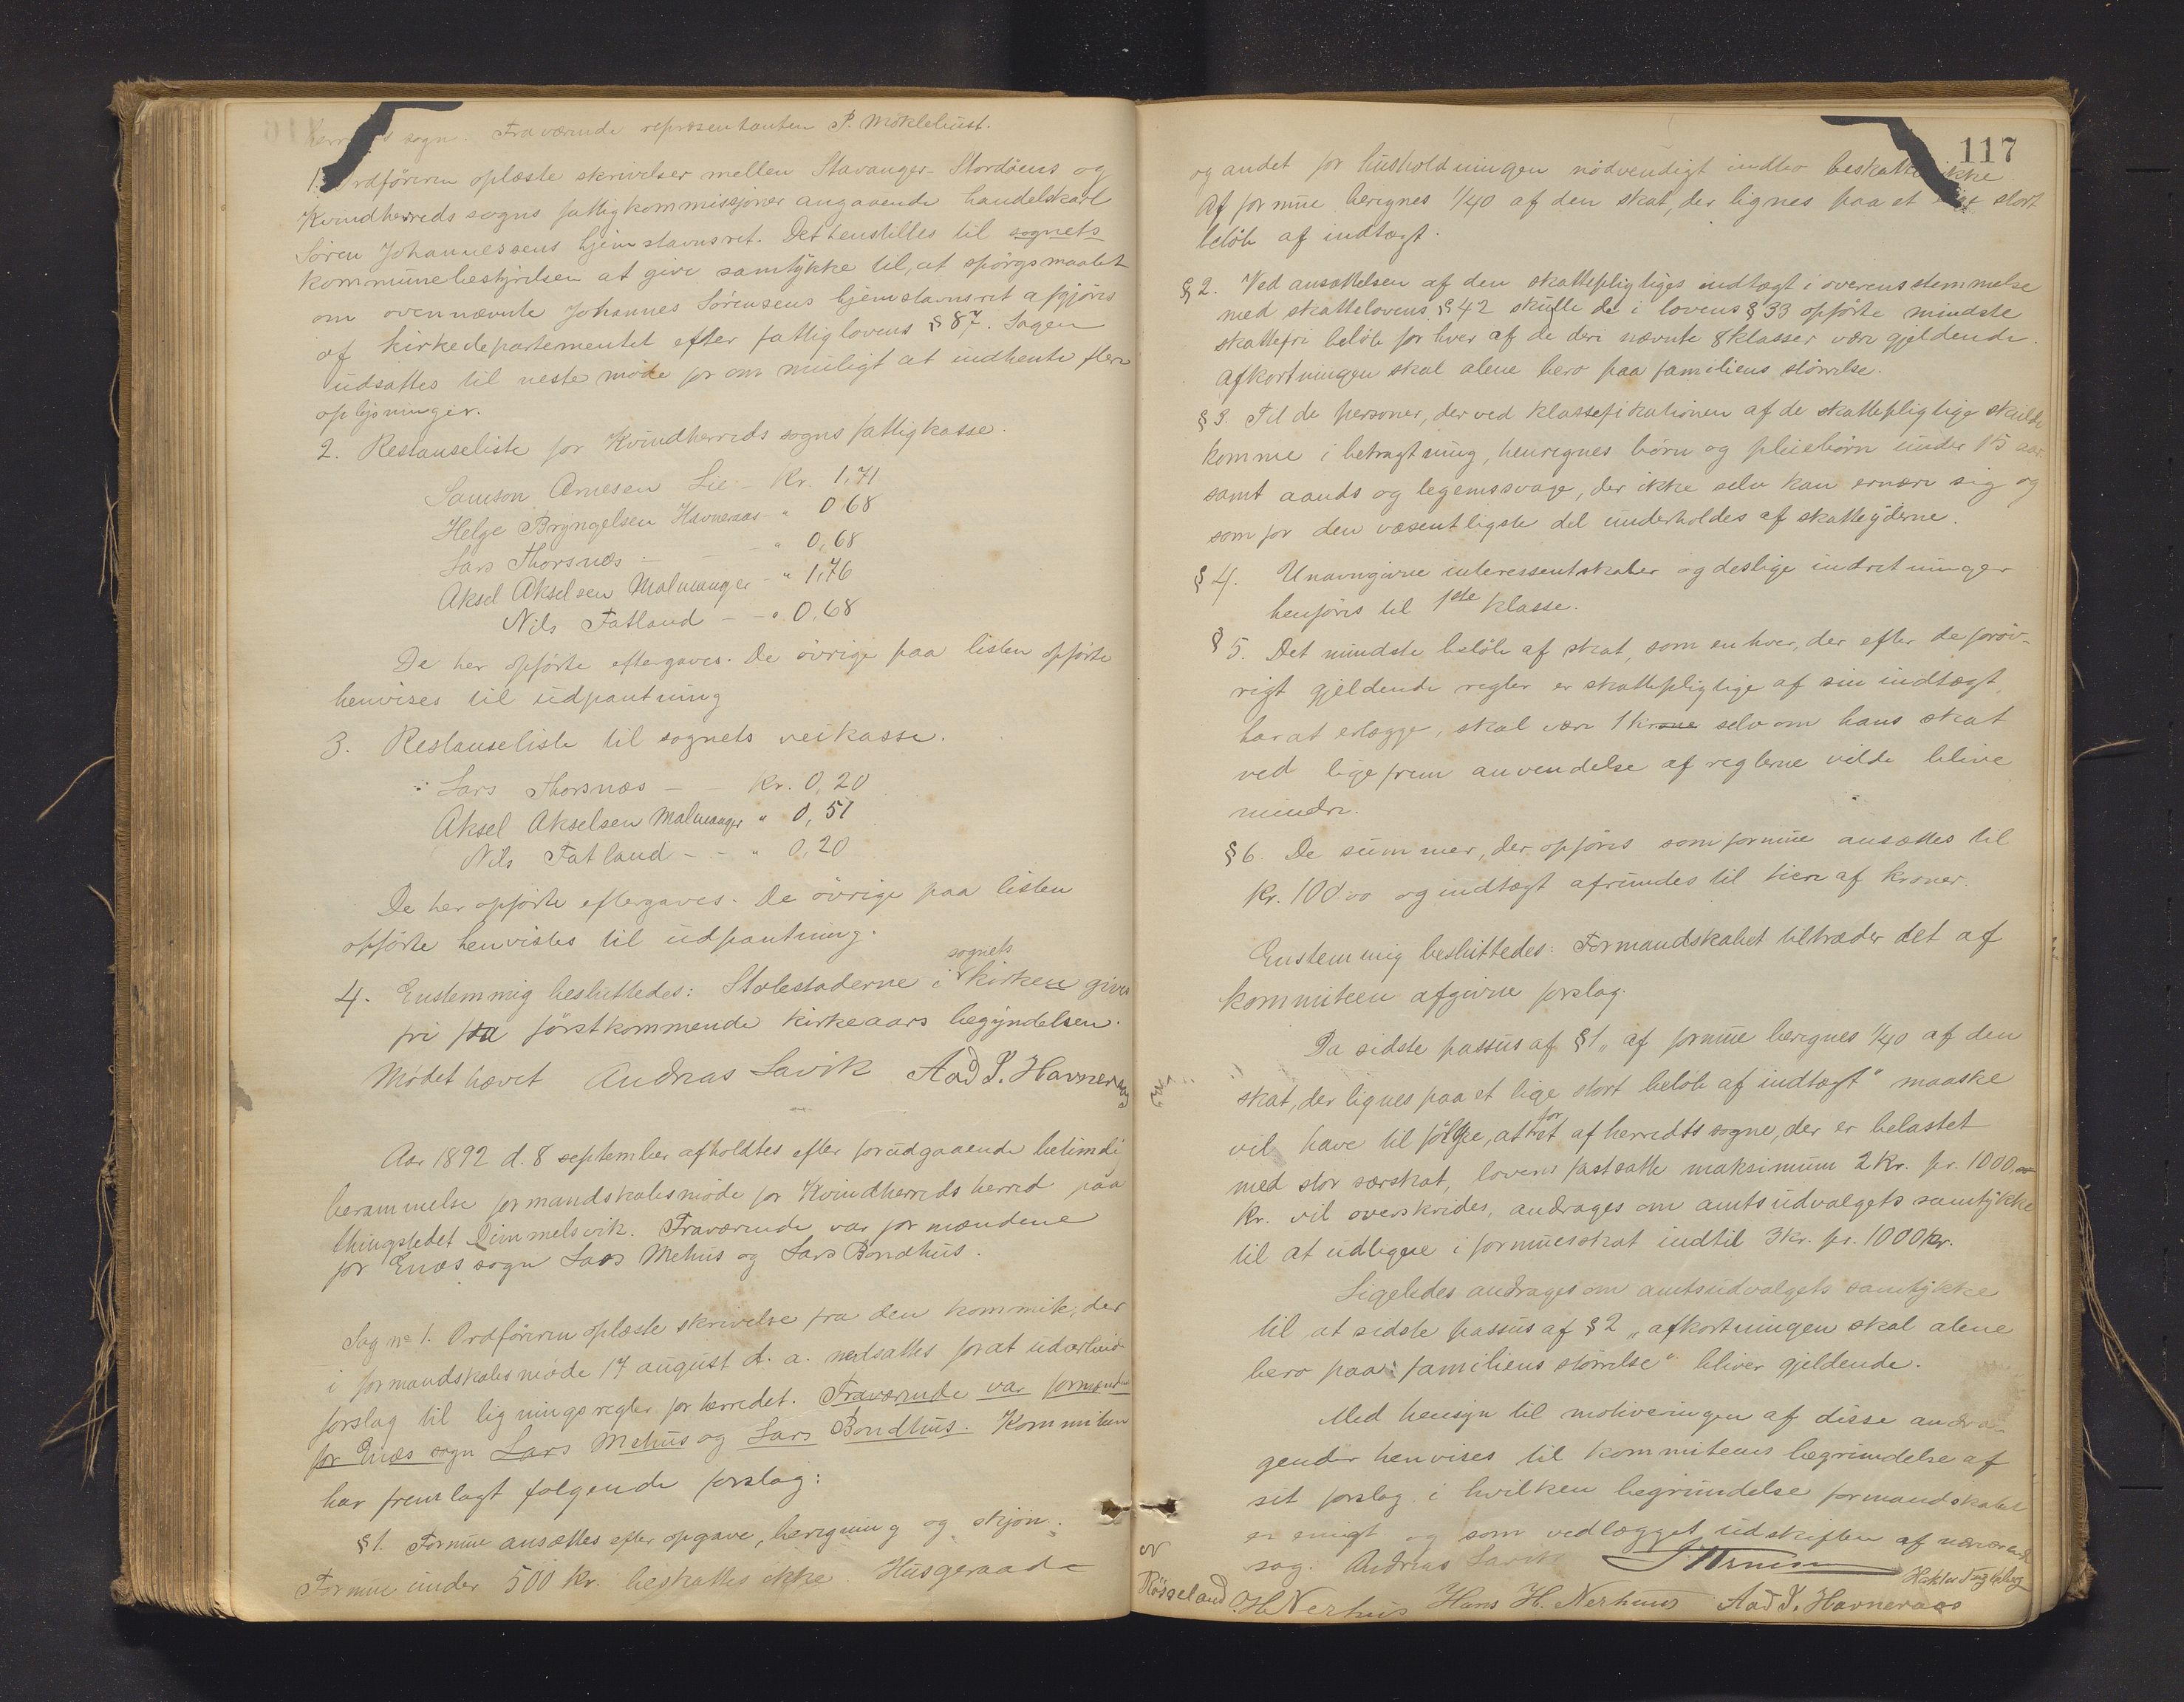 sogn. Fraværende repræsentanten P. Møklebust.
1. Ordføreren oplæste skrivelser mellem Stavanger- Stordøens og
Kvindherreds sogns fattigkommissjoner angaaende handelskarl
Søren Johannessens hjemstavnsret. Det henstilles til sognets
kommunebestyrelsen at give samtykke til, at spørgsmaalet
om ovennævnte Johannes Sørensens hjemstavnsret afgjøres
af kirkedepartementet efter fattiglovens § 87. Sagen
udsattes til neste møde for om muligt at indhente flere
oplysninger.
2. Restanseliste for Kvindherreds sogns fattigkasse.
Samson Arnesen Lie - Kr. 1,71
Helge Bryngelsen Havneraas - " 0,68
Lars Thorsnæs - - - " 0,68
Aksel Akselsen Malmanger - " 1,76
Nils Fatland - - " 0,68
De her opførte eftergaves. De øvrige paa listen opførte
henvises til udpantning
3. Restanseliste til sognets veikasse.
Lars Thorsnæs - - Kr. 0,20
Aksel Akselsen Malmanger " 0,51
Nils Fatland - - " 0,20
De her opførte eftergaves. De øvrige paa listen
opførte henvistes til udpantning.
sognets
4. Enstemmig besluttedes: Stolestaderne i kirken gives
fri fra førstkommende kirkeaars begyndelsen.
Mødet hævet Andreas Savik Aad I. Havneraas
Aar 1892 d. 8 september afholdtes efter forudgaaende betimelig
berammelse formandskabsmøde for Kvindherreds herred paa
thingstedet Dimmelsvik. Fraværende var formændene
for Enæs sogn Lars Mehus og Lars Bondhus.
Sag no 1. Ordføreren oplæste skrivelse fra den kommite, der
i formandskabsmøde 17 august d. a. nedsattes for at udarbeide
forslag til ligningsregler for herredet. Fraværende var formænd
for Enæs sogn Lars Mehus og Lars Bondhus. Kommiteen
har fremlagt følgende forslag:
§ 1. Formue ansættes efter opgave, beregning og skjøn.
Formue under 500 Kr. beskattes ikke. Husgeraade
117
og andet for husholdningen nødvendigt indbo beskattes ikke
Af formue beregnes 1/40 af den skat, der lignes paa et lige stort
beløb af indtægt.
§ 2. Ved ansættelsen af den skattepligtiges indtægt i overensstemmelse
med skattelovens § 42 skulle de i lovens § 33 opførte mindste
skattefri beløb for hver af de deri nævnte 8 klasser være gjeldende.
Afkortningen skal alene bero paa familiens størrelse.
§ 3. Til de personer, der ved klassefikationen af de skattepligtige skulde
komme i betragtning, henregnes børn og pleiebørn under 15 aar
samt aands og legemssvage, der ikke selv kan ernære sig og
som for den væsentligste del underholdes af skatteyderne.
§ 4. Unavngivne interessentskaber og deslige indretninger
henføres til 1ste klasse.
§ 5. Det mindste beløb af skat, som enhver, der efter de forøv-
rigt gjeldende regler er skattepligtige af sin indtægt,
har at erlægge, skal være 1 krone selv om hans skat
ved ligefrem anvendelse af reglerne vilde blive
mindre.
§ 6. De summer, der opføres som formue ansættes til
Kr. 100,00 og indtægt afrundes til tiere af kroner
Enstemmig besluttedes: Formandskabet tiltræder det af
kommiteen afgivne forslag.
Da sidste passus af § 1 „af formue beregnes 1/40 af den
skat, der lignes paa et lige stort beløb af indtægt" maaske
for
vil have til følge, at et af herredts sogne, der er belastet
med stor særskat, lovens fastsatte maksimum 2 Kr. pr. 1000,00
Kr. vil overskrides, andrages om amtsudvalgets samtykke
til at udligne i formuesskat indtil 3 Kr. pr. 1000 Kr.
Ligeledes andrages om amtsudvalgets samtykke
til at sidste passus af § 2 „afkortningen skal alene
bero paa familiens størrelse" bliver gjeldende.
Med hensyn til motiveringen af disse andra-
gender henvises til kommiteens begrundelse af
sit forslag i hvilken begrundelse formandskabet
er enigt og som vedlægget udskriften af nærværende
sag. Andreas Savik
Røsseland O. H. Nerhus Hans H. Nerhuus Aad I. Havneraas